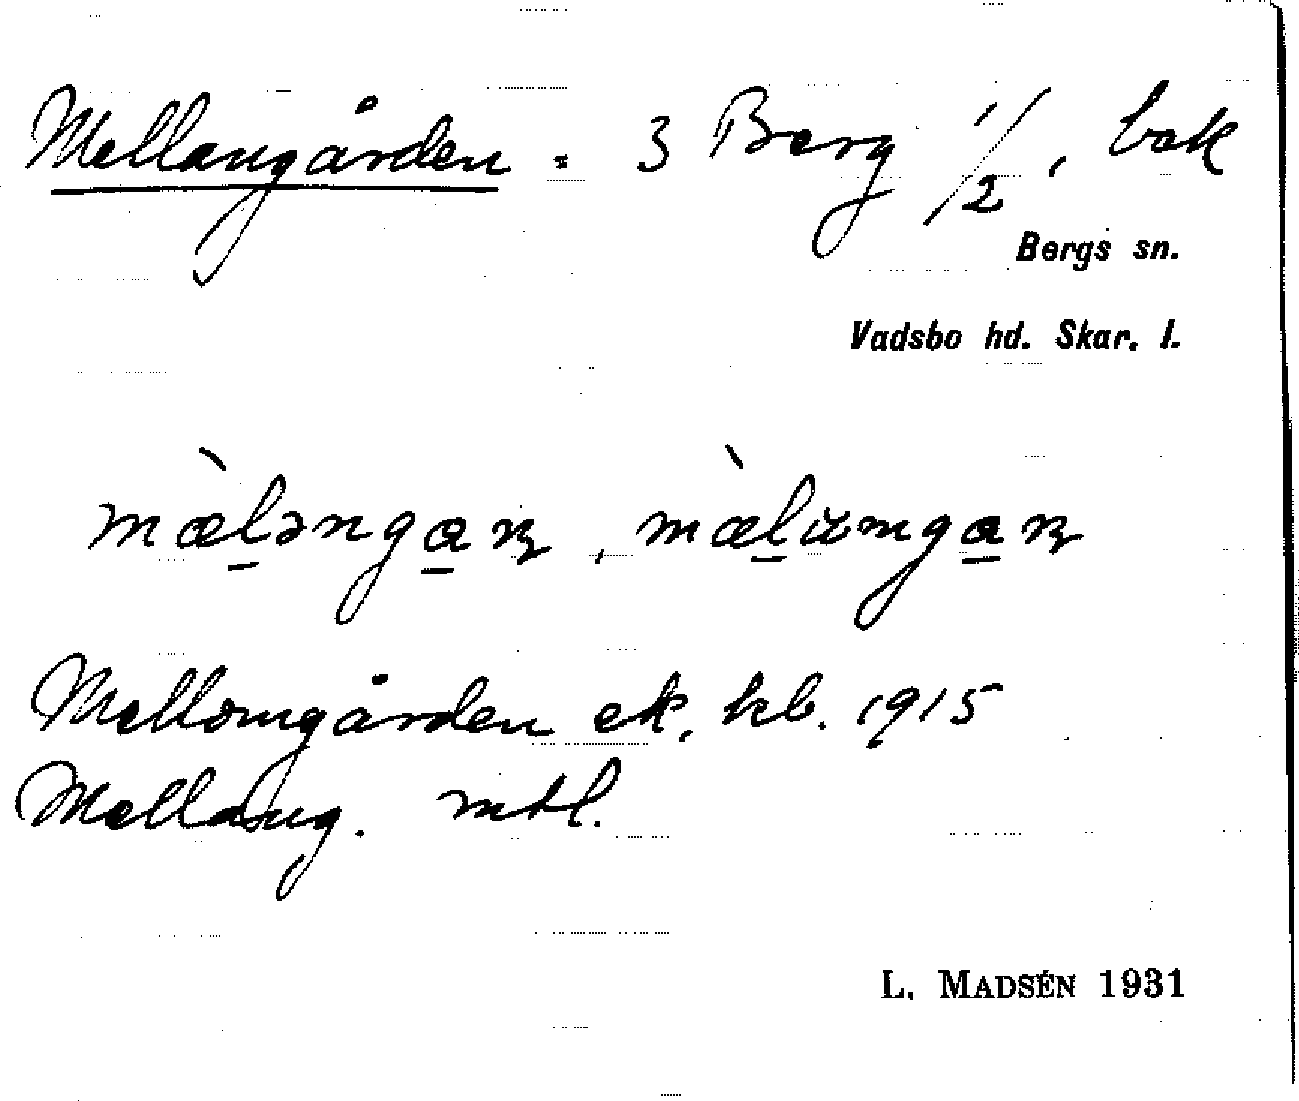 Mellangården = 3 Berg 1/2, bek
Bergs sn.
Vadsbo hd. Skar. l.
Mellomgården ek. kb. 1915
Mellang. mtl.
L. MADSÉN 1931